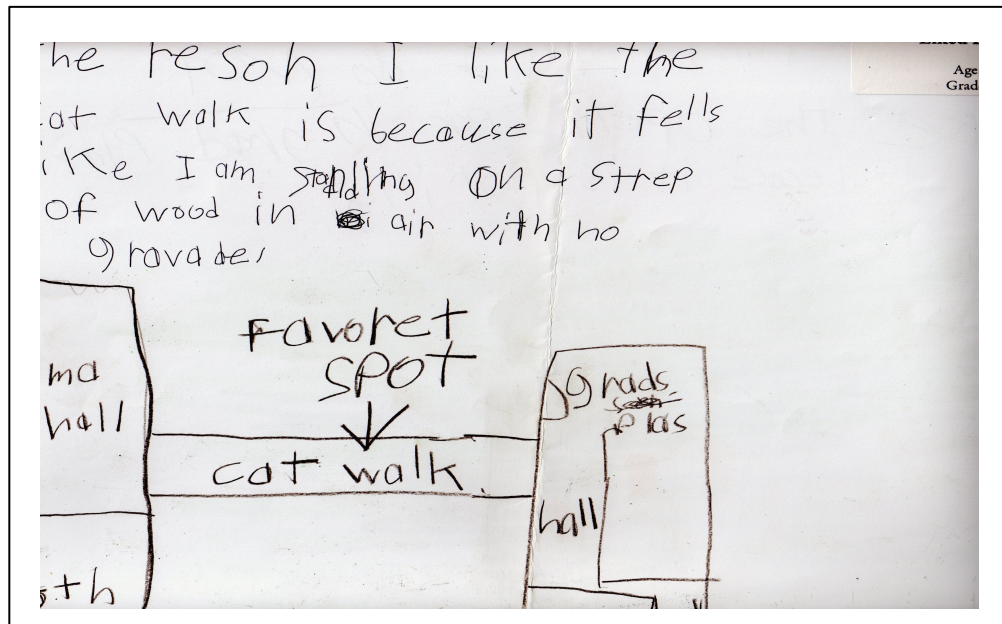 he resoh I like the
at walk is because it fells
ike I am standing on a strep
of wood in air with no
gravades
Favoret
SPOT
ma
hall
cat walk
grads
plas
hall
th
Age
Grad